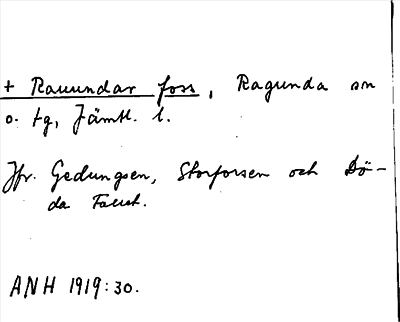 + Rauundar foss, Ragunda sn
o. tg, Jämtl. l.
Jfr. Gedungsen, Storforsen och Dö-
da Faust.
ANH 1919:30.